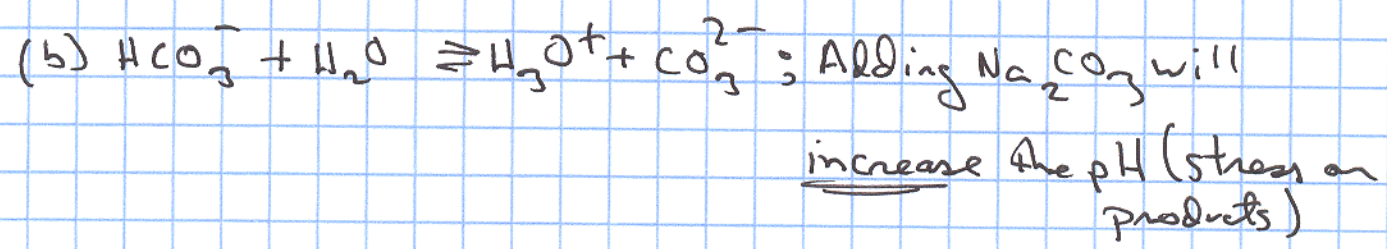 (b) HCO₃⁻ + H₂O ⇌ H₃O⁺ + CO₃²⁻ ; Adding Na₂CO₃ will
increase the pH (stress on
products)